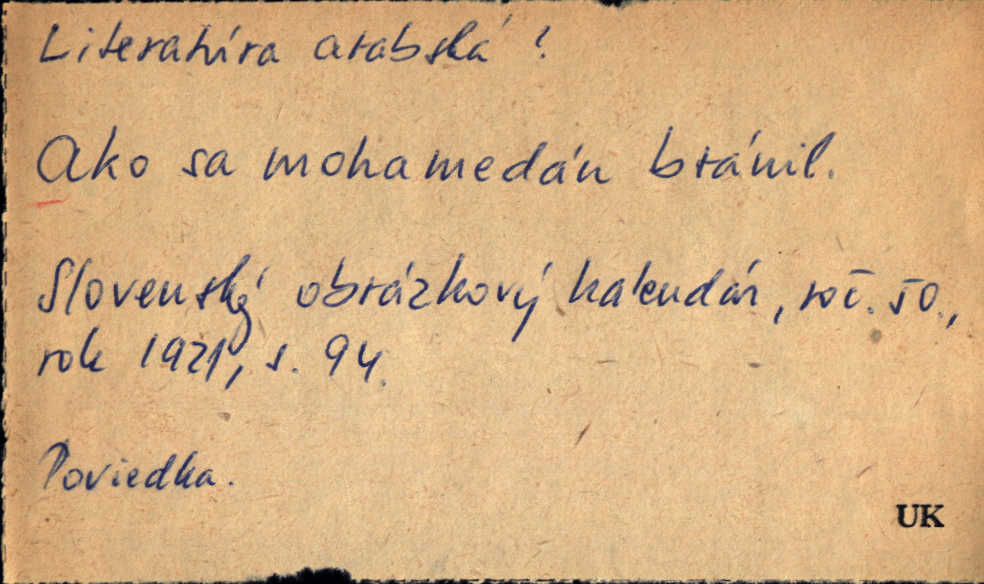 Literatúra arabská?
Ako sa mohamedán bránil.
Slovenský obrázkový kalendár, roč. 50.,
rok 1921, s. 94.
Poviedka.
UK